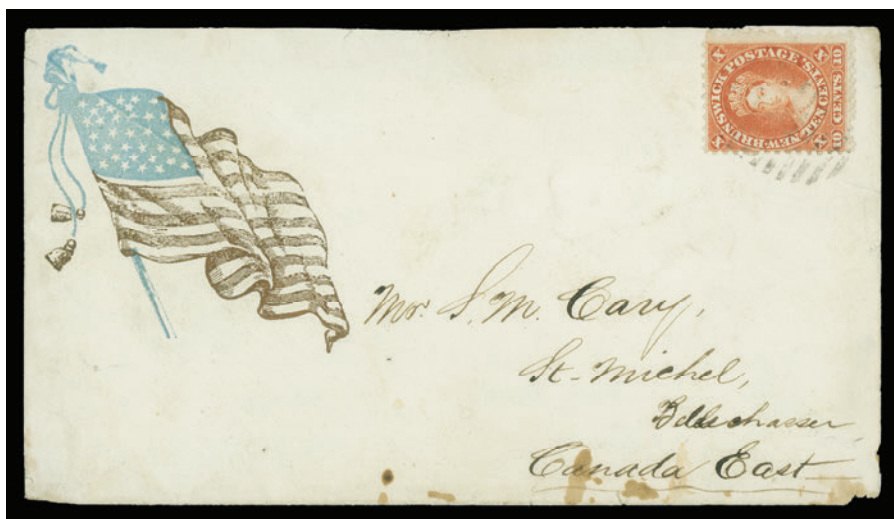 X X 10
NEW-BRUNSWICK POSTAGE TEN CENTS
10 CENTS 10
X X
Mr. S. M. Cary,
St-Michel,
Bellechasser
Canada East